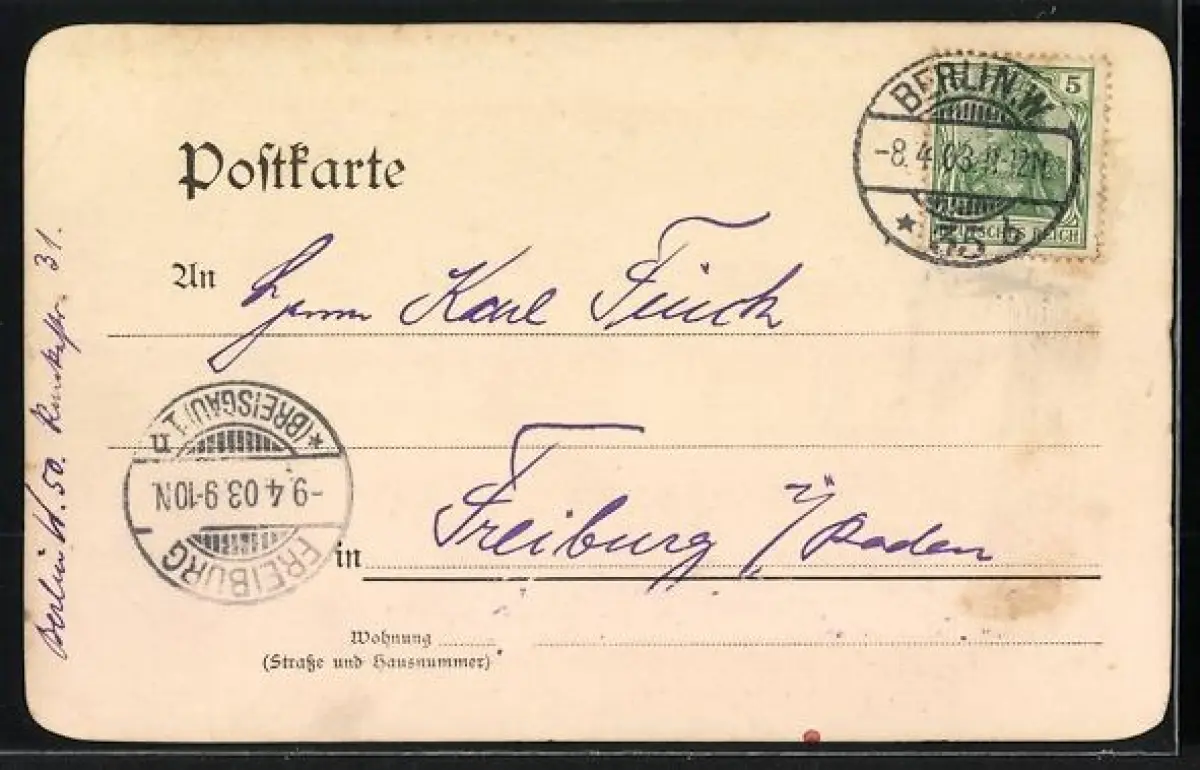 Postkarte
BERLIN.W.
-8.4.03.11-12N.
* b
5
DEUTSCHES REICH
An Herrn Karl
*(BREISGAU)1
-9.4.03.9-10N.
FREIBURG
in Freiburg i/Baden
Wohnung
(Straße und Hausnummer)
Berlin W. 50. 31.